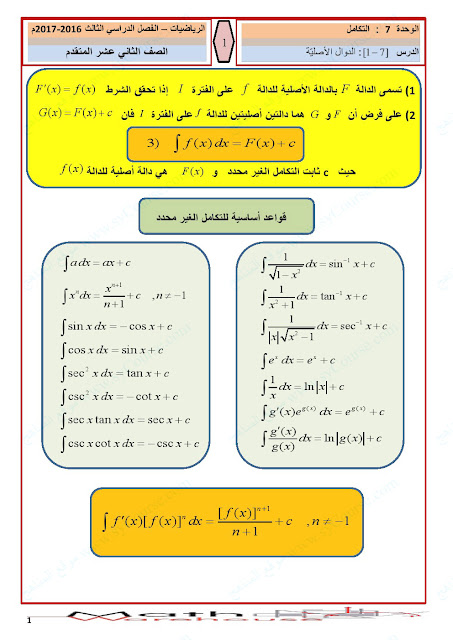 الوحدة 7 : التكامل
الرياضيات – الفصل الدراسي الثالث 2016-2017م
1
الدرس [7-1]: الدوال الأصلية
الصف الثاني عشر المتقدم
1) تسمى الدالة F بالدالة الأصلية للدالة f على الفترة I إذا تحقق الشرط F'(x) = f(x)
2) على فرض أن F و G هما دالتين أصليتين للدالة f على الفترة I فان G(x) = F(x) + c
3) ∫ f(x) dx = F(x) + c
حيث c ثابت التكامل الغير محدد و F(x) هي دالة أصلية للدالة f(x)
قواعد أساسية للتكامل الغير محدد
∫ a dx = ax + c
∫ x^n dx = x^(n+1)/(n+1) + c , n ≠ −1
∫ sin x dx = − cos x + c
∫ cos x dx = sin x + c
∫ sec² x dx = tan x + c
∫ csc² x dx = − cot x + c
∫ sec x tan x dx = sec x + c
∫ csc x cot x dx = − csc x + c
∫ 1/√(1−x²) dx = sin⁻¹ x + c
∫ 1/(x²+1) dx = tan⁻¹ x + c
∫ 1/(|x|√(x²−1)) dx = sec⁻¹ x + c
∫ e^x dx = e^x + c
∫ 1/x dx = ln|x| + c
∫ g'(x)e^(g(x)) dx = e^(g(x)) + c
∫ g'(x)/g(x) dx = ln|g(x)| + c
∫ f'(x)[f(x)]^n dx = [f(x)]^(n+1)/(n+1) + c , n ≠ −1
1
Math
Warehouse